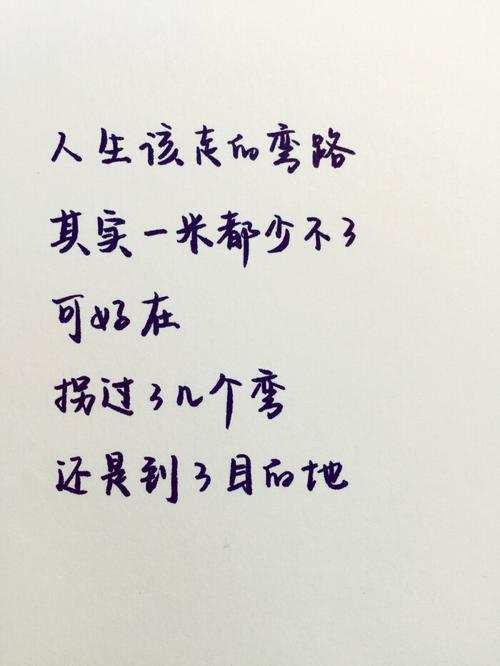 人生该走的弯路
其实一米都少不了
可好在
拐过了几个弯
还是到了目的地